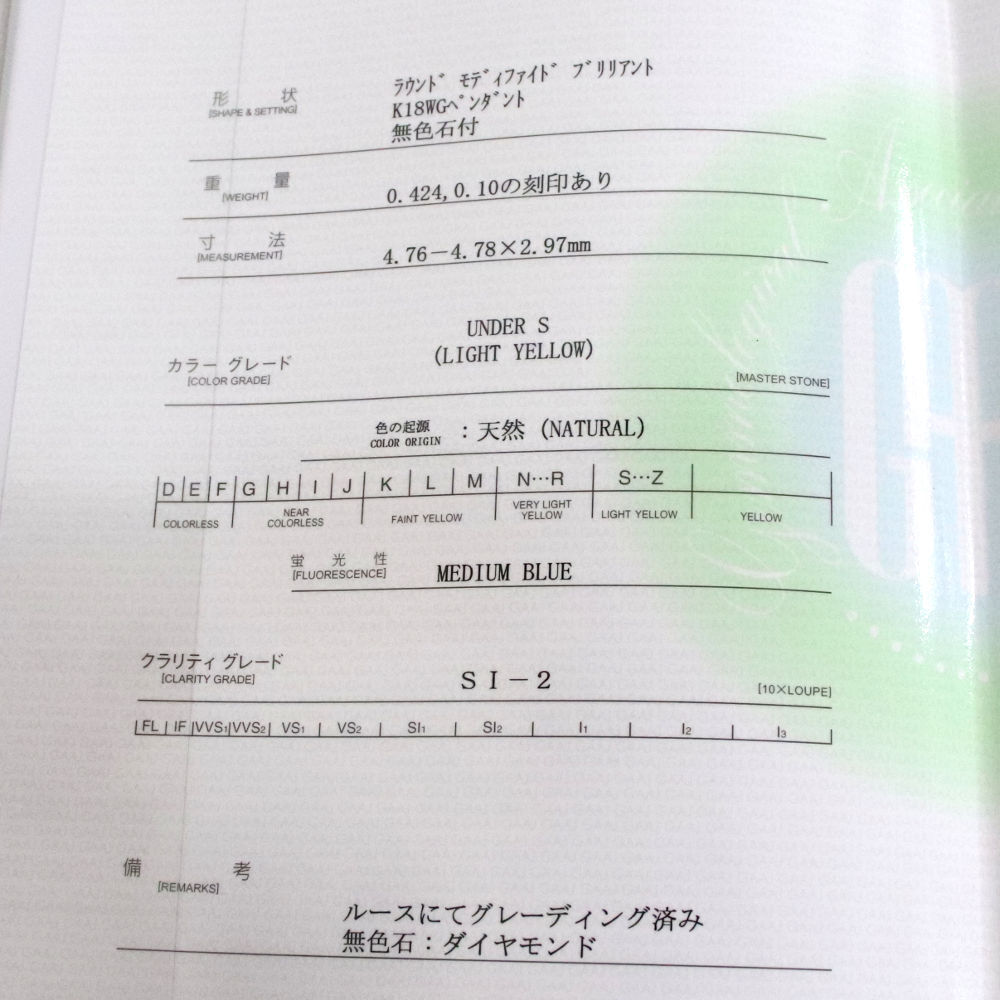 形 状
[SHAPE & SETTING]
ﾗｳﾝﾄﾞ ﾓﾃﾞｨﾌｧｲﾄﾞ ﾌﾞﾘﾘｱﾝﾄ
K18WGﾍﾟﾝﾀﾞﾝﾄ
無色石付
重 量
[WEIGHT]
0.424,0.10の刻印あり
寸 法
[MEASUREMENT]
4.76－4.78×2.97mm
UNDER S
(LIGHT YELLOW)
カラー グレード
[COLOR GRADE]
[MASTER STONE]
色の起源
COLOR ORIGIN
：天然 (NATURAL)
D E F G H I J K L M N…R S…Z
COLORLESS
NEAR COLORLESS
FAINT YELLOW
VERY LIGHT YELLOW
LIGHT YELLOW
YELLOW
蛍 光 性
[FLUORESCENCE]
MEDIUM BLUE
クラリティ グレード
[CLARITY GRADE]
SI－2
[10×LOUPE]
FL IF VVS1 VVS2 VS1 VS2 SI1 SI2 I1 I2 I3
備 考
[REMARKS]
ルースにてグレーディング済み
無色石：ダイヤモンド